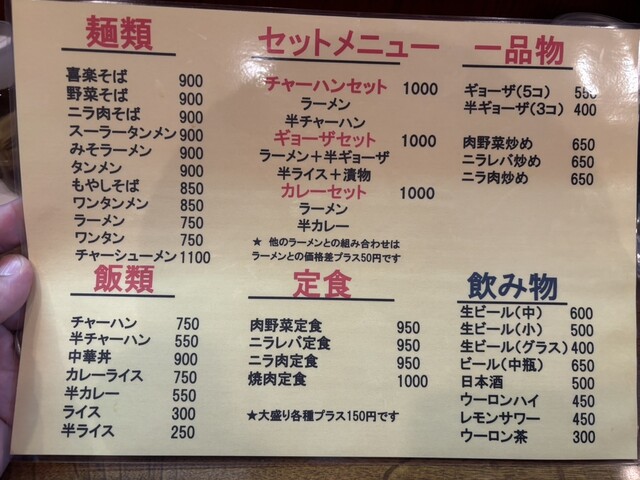 麺類
喜楽そば 900
野菜そば 900
ニラ肉そば 900
スーラータンメン 900
みそラーメン 900
タンメン 900
もやしそば 850
ワンタンメン 850
ラーメン 750
ワンタン 750
チャーシューメン 1100
セットメニュー
チャーハンセット 1000
ラーメン
半チャーハン
ギョーザセット 1000
ラーメン+半ギョーザ
半ライス+漬物
カレーセット 1000
ラーメン
半カレー
★ 他のラーメンとの組み合わせは
ラーメンとの価格差プラス50円です
一品物
ギョーザ(5コ) 550
半ギョーザ(3コ) 400
肉野菜炒め 650
ニラレバ炒め 650
ニラ肉炒め 650
飯類
チャーハン 750
半チャーハン 550
中華丼 900
カレーライス 750
半カレー 550
ライス 300
半ライス 250
定食
肉野菜定食 950
ニラレバ定食 950
ニラ肉定食 950
焼肉定食 1000
★大盛り各種プラス150円です
飲み物
生ビール(中) 600
生ビール(小) 500
生ビール(グラス) 400
ビール(中瓶) 650
日本酒 500
ウーロンハイ 450
レモンサワー 450
ウーロン茶 300